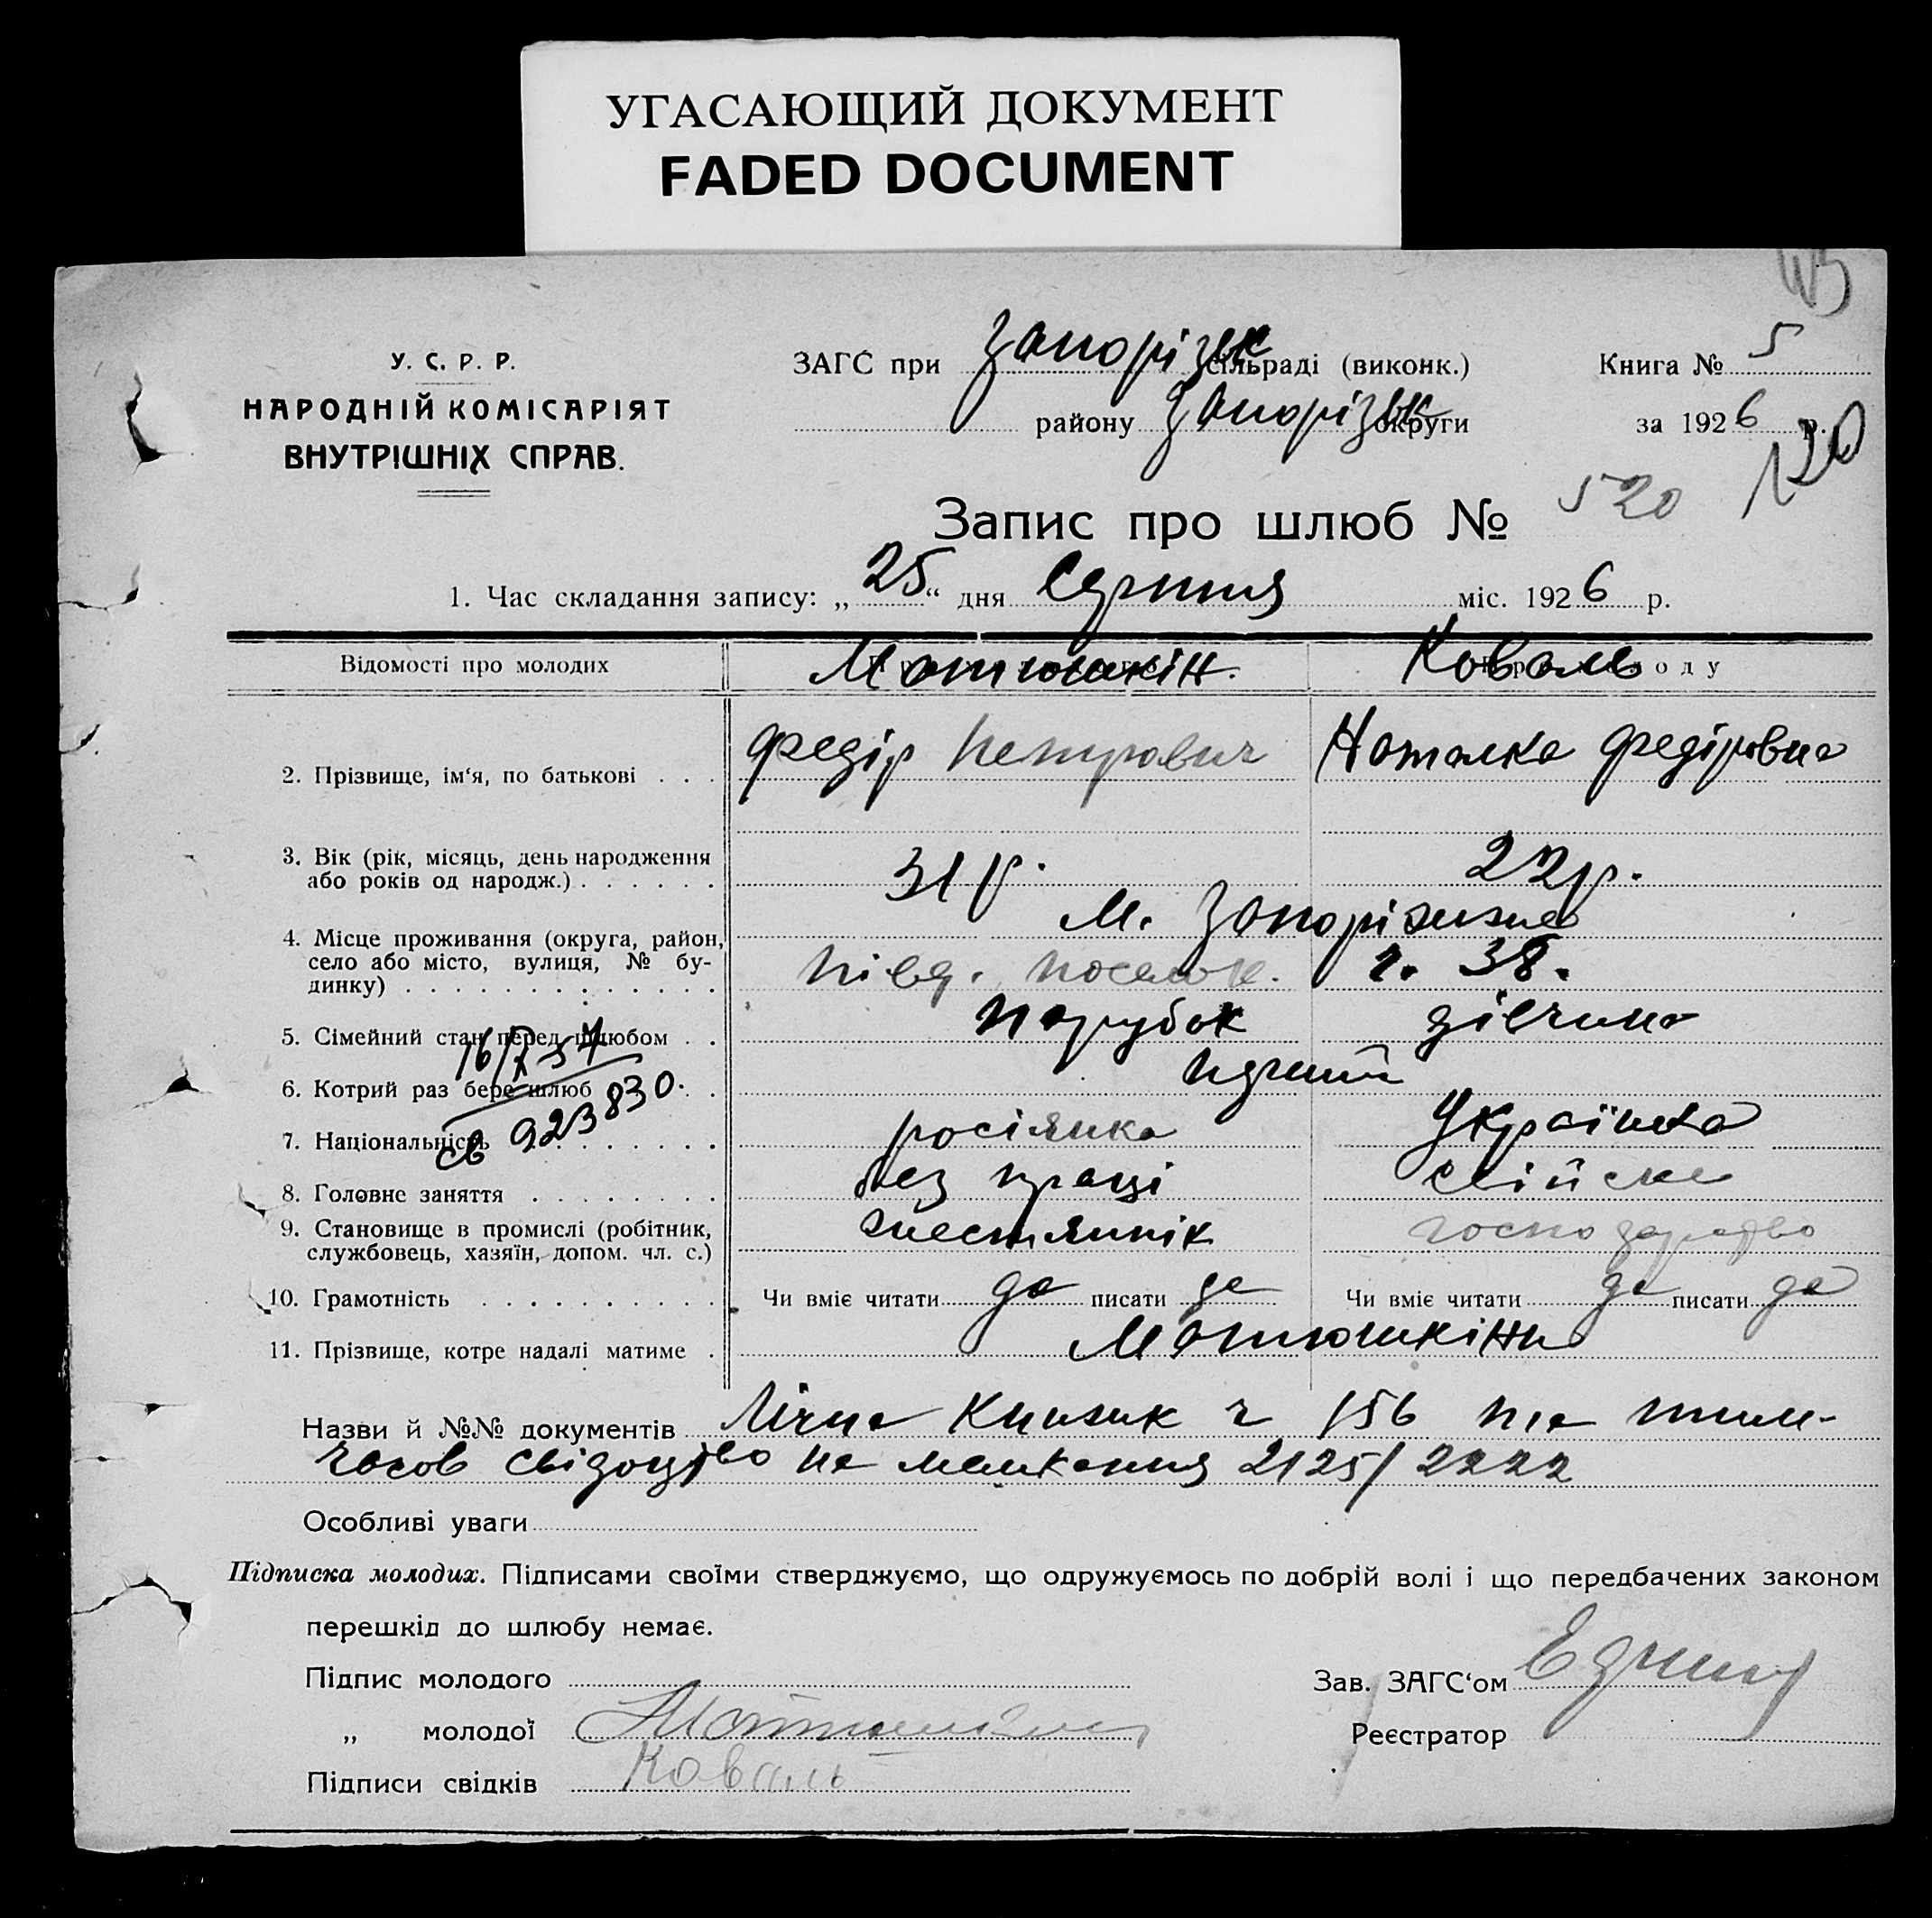 УГАСАЮЩИЙ ДОКУМЕНТ
FADED DOCUMENT
У. С. Р. Р.
НАРОДНІЙ КОМІСАРІЯТ
ВНУТРІШНІХ СПРАВ.
ЗАГС при Запорізьк сільраді (виконк.)
району Запорізьк округи
Книга № 5
за 1926 р.
120
Запис про шлюб № 520
1. Час складання запису: „25“ дня Серпня міс. 1926 р.
Відомості про молодих Матюшкін. Коваль
2. Прізвище, ім‘я, по батькові . . . Федір Петрович Наталка Федірівна
3. Вік (рік, місяць, день народження
або років од народж.) . . . . . . 31 р. 22 р.
4. Місце проживання (округа, район, М. Запоріжжя
село або місто, вулиця, № бу-
динку) . . . . . . . . . . . . . . Півд. поселок. ч. 38.
5. Сімейний стан перед шлюбом . . парубок дівчина
6. Котрий раз бере шлюб . . перший
7. Національність . . . . . . . . росіянка Українка
св 923830.
8. Головне заняття . . . . . . . . без праці сільске
9. Становище в промислі (робітник,
службовець, хазяїн, допом. чл. с.) господарство
10. Грамотність . . . . . . . . . . Чи вміє читати да писати да Чи вміє читати да писати да
11. Прізвище, котре надалі матиме . Матюшкіни
Назви й №№ документів Лічна Книжк ч 156 та тим-
часов свідоцтво на мешкання 2125/2222
Особливі уваги
Підписка молодих. Підписами своїми стверджуємо, що одружуємось по добрій волі і що передбачених законом
перешкід до шлюбу немає.
Підпис молодого
„ молодої
Підписи свідків Коваль
Зав. ЗАГС‘ом
Реєстратор